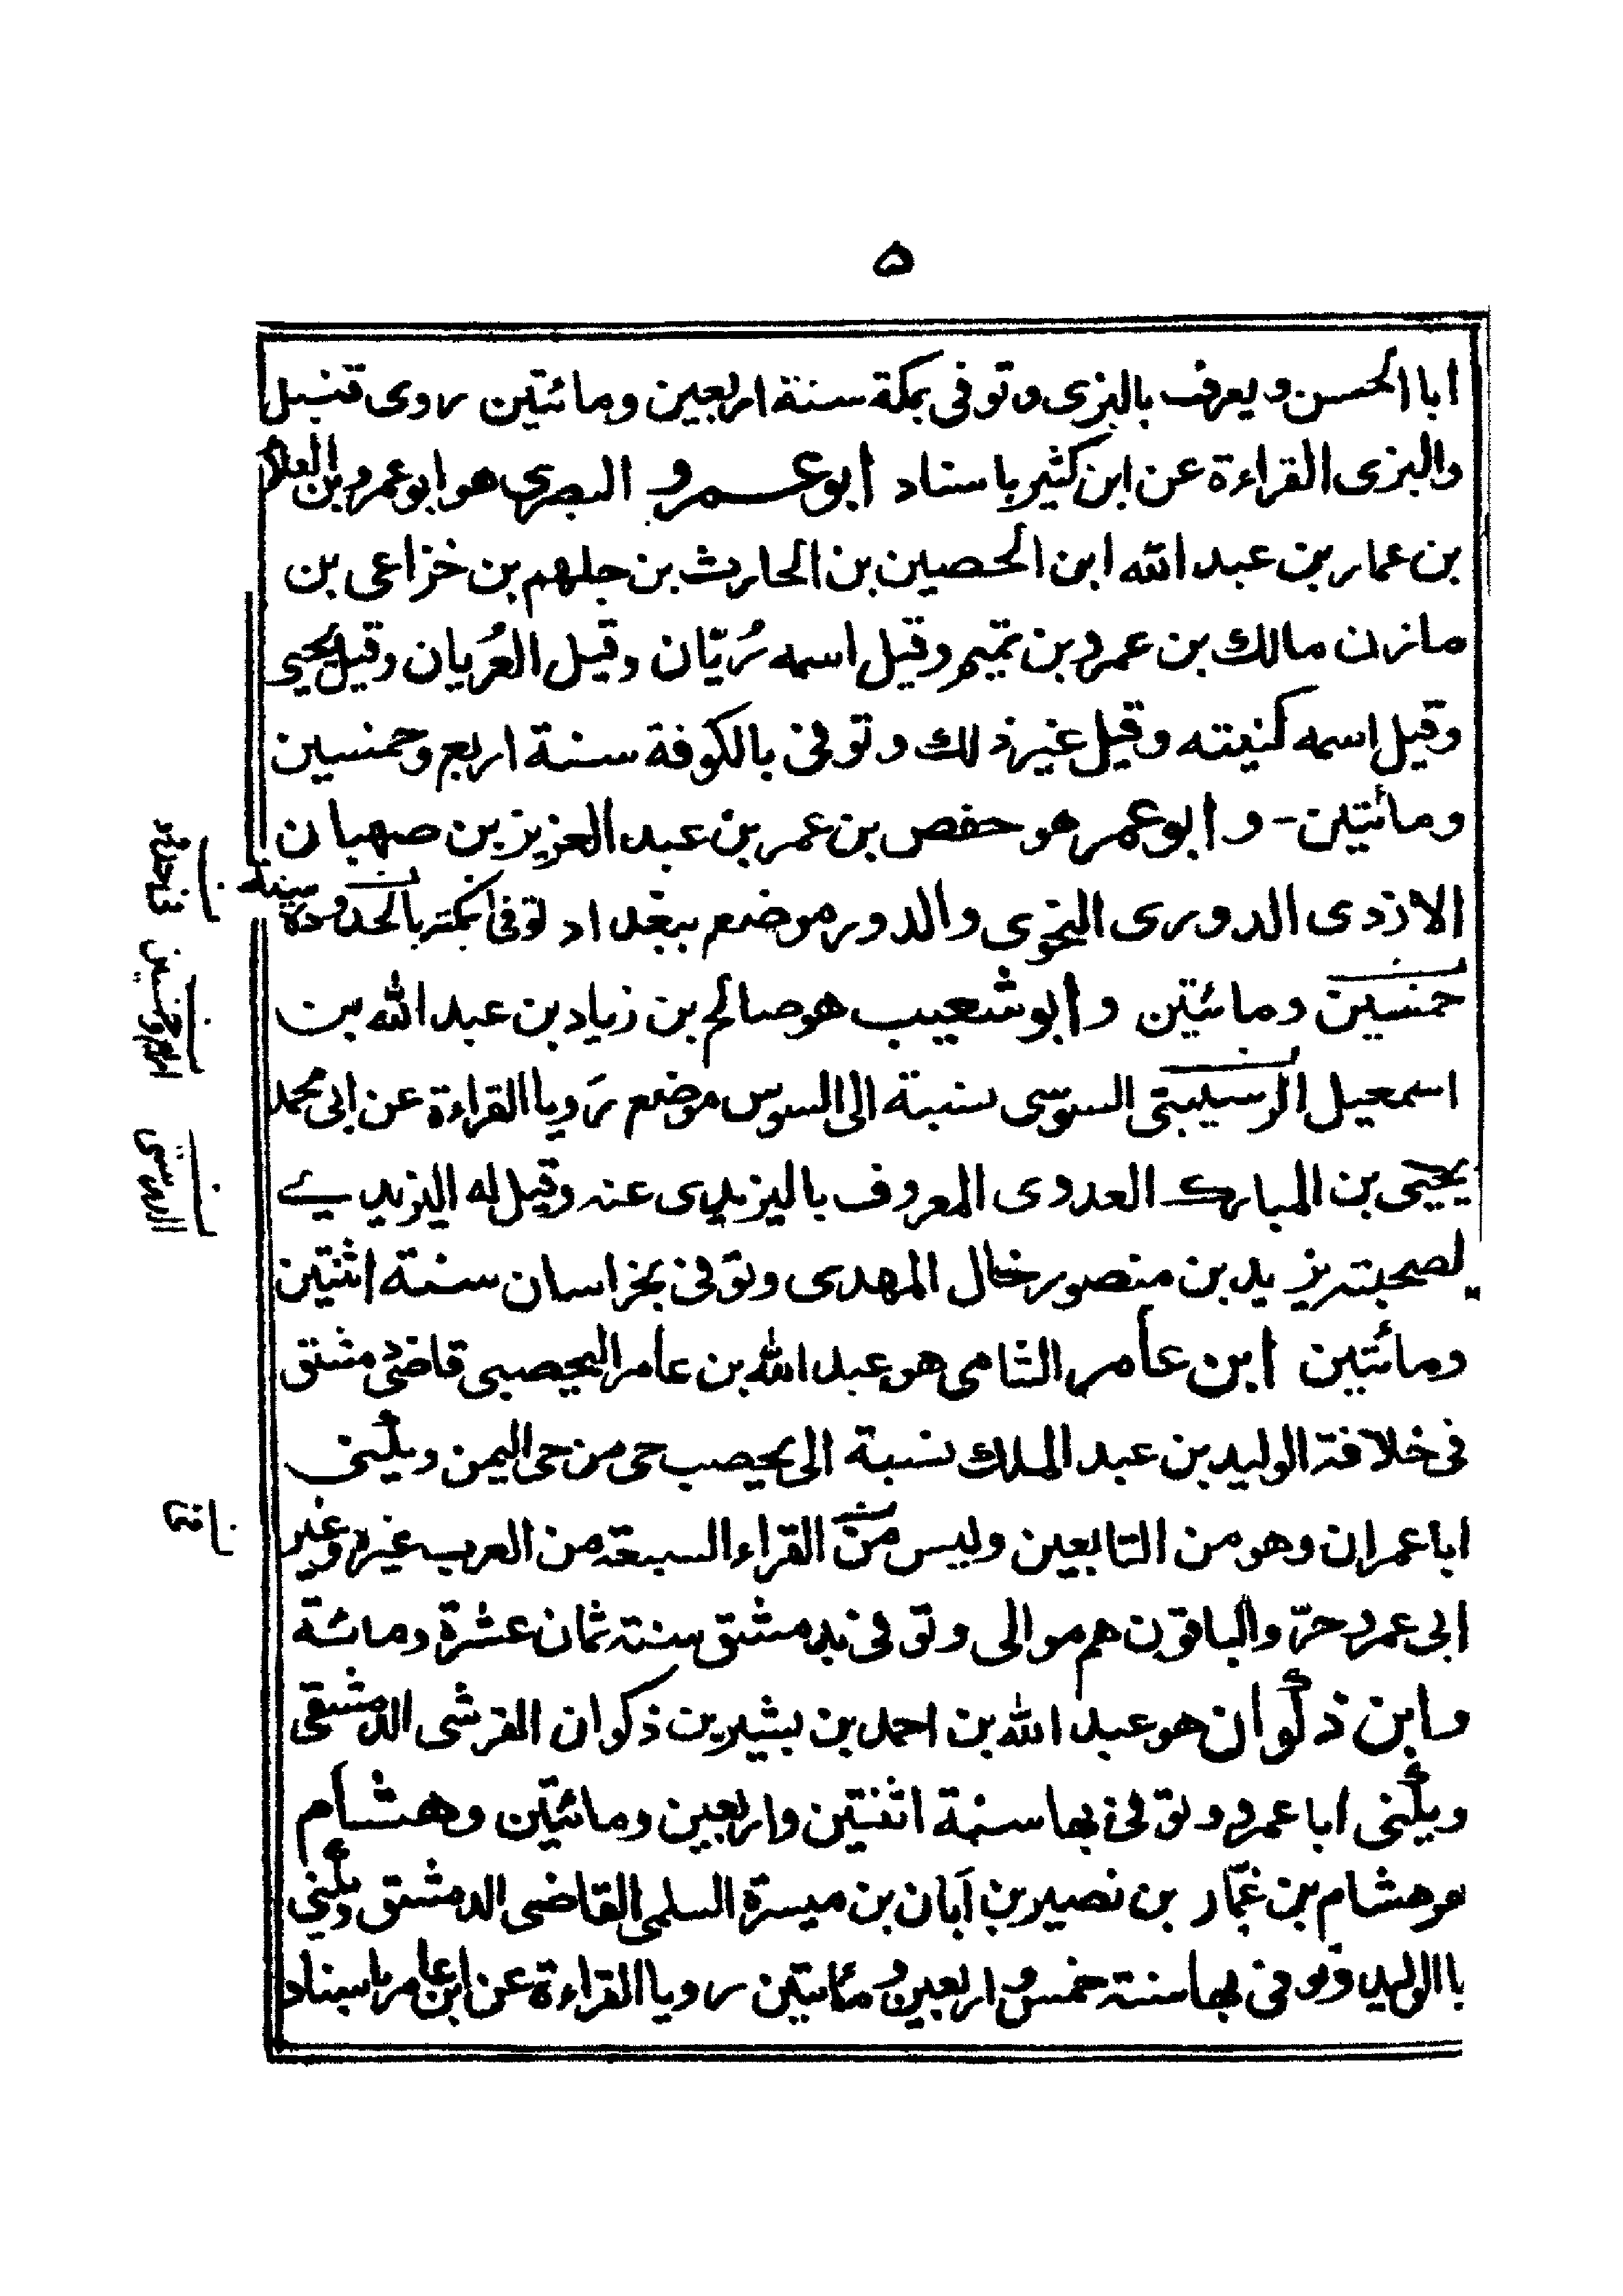 ۵
ابا الحسن ويعرف بالبزى وتوفى بمكة سنة اربعين ومائتين روى قنبل
والبزى القراءة عن ابن كثير باسناد ابوعمرو البصرى هو ابوعمرو بن العلاء
بن عمار بن عبد الله ابن الحصين بن الحارث بن جلهم بن خزاعى بن
مازن مالك بن عمرو بن تميم وقيل اسمه رُبّان وقيل العُريان وقيل يحيى
وقيل اسمه كنيته وقيل غير ذلك وتوفى بالكوفة سنة اربع وخمسين
ومائتين - و ابوعمر هو حفص بن عمر بن عبد العزيز بن صهبان
الازدى الدورى النحوى والدور موضع ببغداد توفى بمكة بالحدودة سنة
خمسين ومائتين و ابوشعيب هو صالح بن زياد بن عبد الله بن
اسمعيل الرسيبتى السوسى نسبة الى السوس موضع رَويا القراءة عن ابى محمد
يحيى بن المبارك العدوى المعروف باليزيدى عنه وقيل له اليزيدى
لصحبته يزيد بن منصور خال المهدى وتوفى بخراسان سنة اثنتين
ومائتين ابن عامر الشامى هو عبد الله بن عامر اليحصبى قاضى دمشق
فى خلافة الوليد بن عبد الملك نسبة الى يحصب حى من حى اليمن ويكنى
ابا عمران وهو من التابعين وليس من القراء السبعة من العرب غيره وغير
ابى عمرو حرّ والباقون هم موالى وتوفى بدمشق سنة ثمان عشرة ومائة
وابن ذكوان هو عبد الله بن احمد بن بشير بن ذكوان القرشى الدمشقى
ويكنى ابا عمرو وتوفى بها سنة اثنتين واربعين ومائتين وهشام
هو هشام بن عمّار بن نصير بن أبان بن ميسرة السلمى القاضى الدمشقى ويكنى
با الوليد وتوفى بها سنة خمس و اربعين و مائتين رويا القراءة عن ابن عامر باسناد